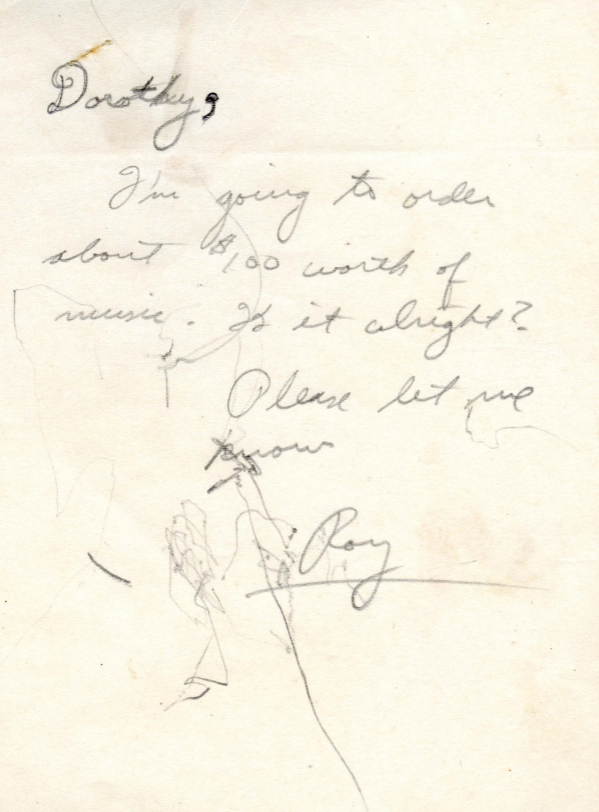 Dorothy,
I'm going to order
about $100 worth of
music. Is it alright?
Please let me
know
Roy